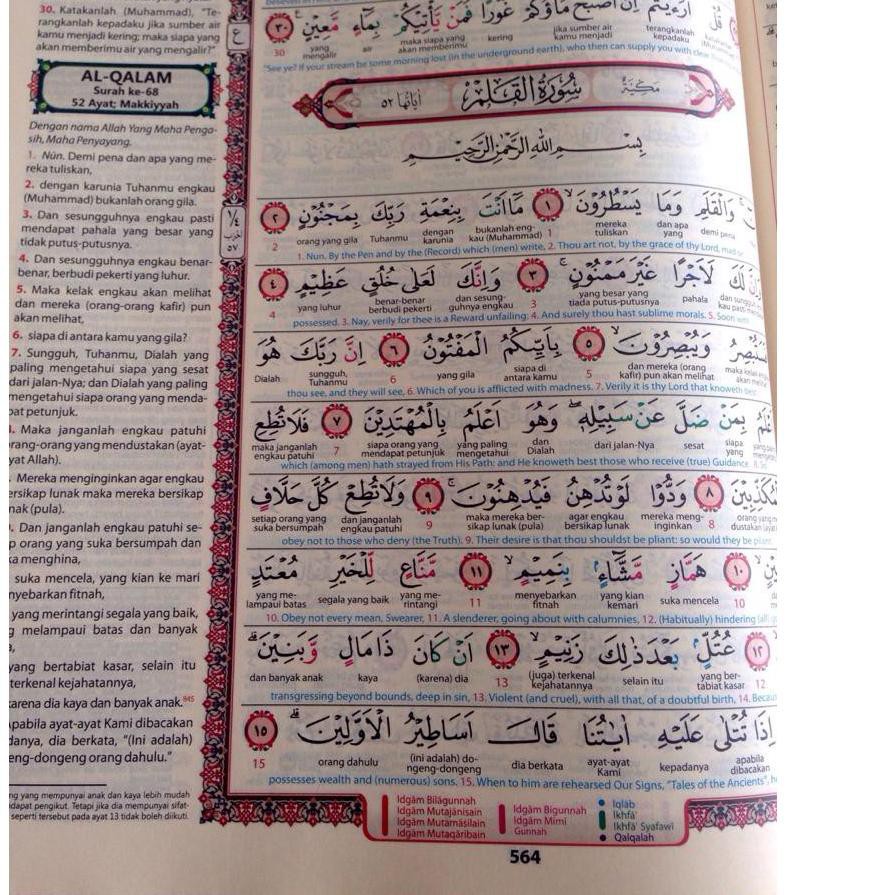 30. Katakanlah (Muhammad), "Te-
rangkanlah kepadaku jika sumber air
kamu menjadi kering; maka siapa yang
akan memberimu air yang mengalir?"
AL-QALAM
Surah ke-68
52 Ayat; Makkiyyah
Dengan nama Allah Yang Maha Penga-
sih, Maha Penyayang.
1. Nūn. Demi pena dan apa yang me-
reka tuliskan,
2. dengan karunia Tuhanmu engkau
(Muhammad) bukanlah orang gila.
3. Dan sesungguhnya engkau pasti
mendapat pahala yang besar yang
tidak putus-putusnya.
4. Dan sesungguhnya engkau benar-
benar, berbudi pekerti yang luhur.
5. Maka kelak engkau akan melihat
dan mereka (orang-orang kafir) pun
akan melihat,
6. siapa di antara kamu yang gila?
7. Sungguh, Tuhanmu, Dialah yang
paling mengetahui siapa yang sesat
dari jalan-Nya; dan Dialah yang paling
mengetahui siapa orang yang menda-
pat petunjuk.
Maka janganlah engkau patuhi
orang-orang yang mendustakan (ayat-
yat Allah).
Mereka menginginkan agar engkau
ersikap lunak maka mereka bersikap
nak (pula).
Dan janganlah engkau patuhi se-
p orang yang suka bersumpah dan
ka menghina,
suka mencela, yang kian ke mari
nyebarkan fitnah,
yang merintangi segala yang baik,
g melampaui batas dan banyak
yang bertabiat kasar, selain itu
terkenal kejahatannya,
karena dia kaya dan banyak anak.⁸⁴⁵
Apabila ayat-ayat Kami dibacakan
danya, dia berkata, "(Ini adalah)
eng-dongeng orang dahulu."
ng yang mempunyai anak dan kaya lebih mudah
dapat pengikut. Tetapi jika dia mempunyai sifat-
seperti tersebut pada ayat 13 tidak boleh diikuti.
¼
الحزب
٥٧
قُلْ اَرَءَيْتُمْ اِنْ اَصْبَحَ مَاۤؤُكُمْ غَوْرًا فَمَنْ يَّأْتِيْكُمْ بِمَاۤءٍ مَّعِيْنٍ ࣖ ٣٠
terangkanlah kepadaku jika sumber air kamu menjadi kering maka siapa yang akan memberimu air yang mengalir 30
"See ye? If your stream be some morning lost (in the underground earth), who then can supply you with clear
مَكِّيَّة سُوْرَةُ الْقَلَمِ اٰيَاتُهَا ٥٢
بِسْمِ اللّٰهِ الرَّحْمٰنِ الرَّحِيْمِ
وَالْقَلَمِ وَمَا يَسْطُرُوْنَۙ ١ مَآ اَنْتَ بِنِعْمَةِ رَبِّكَ بِمَجْنُوْنٍ ٢
demi pena dan apa yang mereka tuliskan 1 bukanlah eng-kau (Muhammad) dengan karunia Tuhanmu orang yang gila 2
1. Nun. By the Pen and by the (Record) which (men) write, 2. Thou art not, by the grace of thy Lord, mad or
لَكَ لَاَجْرًا غَيْرَ مَمْنُوْنٍۚ ٣ وَاِنَّكَ لَعَلٰى خُلُقٍ عَظِيْمٍ ٤
pahala yang besar yang tiada putus-putusnya 3 dan sesung-guhnya engkau benar-benar berbudi pekerti yang luhur 4
possessed. 3. Nay, verily for thee is a Reward unfailing: 4. And surely thou hast sublime morals. 5. Soon
وَيُبْصِرُوْنَۙ ٥ بِاَيِّكُمُ الْمَفْتُوْنُ ٦ اِنَّ رَبَّكَ هُوَ
maka kelak engkau akan melihat dan mereka (orang kafir) pun akan melihat 5 siapa di antara kamu yang gila 6 sungguh, Tuhanmu Dialah
thou see, and they will see, 6. Which of you is afflicted with madness. 7. Verily it is thy Lord that knoweth best
بِمَنْ ضَلَّ عَنْ سَبِيْلِهٖۖ وَهُوَ اَعْلَمُ بِالْمُهْتَدِيْنَ ٧ فَلَا تُطِعِ
siapa yang sesat dari jalan-Nya dan Dialah yang paling mengetahui siapa orang yang mendapat petunjuk 7 maka janganlah engkau patuhi
which (among men) hath strayed from His Path: and He knoweth best those who receive (true) Guidance. 8. So
ٱلْمُكَذِّبِيْنَ ٨ وَدُّوْا لَوْ تُدْهِنُ فَيُدْهِنُوْنَۚ ٩ وَلَا تُطِعْ كُلَّ حَلَّافٍ
8 mereka meng-inginkan agar engkau bersikap lunak maka mereka ber-sikap lunak (pula) 9 dan janganlah engkau patuhi setiap orang yang suka bersumpah
obey not to those who deny (the Truth). 9. Their desire is that thou shouldst be pliant: so would they be pliant.
١٠ هَمَّازٍ مَّشَّاۤءٍۢ بِنَمِيْمٍۙ ١١ مَّنَّاعٍ لِّلْخَيْرِ مُعْتَدٍ
10 suka mencela yang kian kemari menyebarkan fitnah 11 yang me-rintangi segala yang baik yang me-lampaui batas
10. Obey not every mean, Swearer, 11. A slenderer, going about with calumnies, 12. (Habitually) hindering (all)
١٢ عُتُلٍّۢ بَعْدَ ذٰلِكَ زَنِيْمٍۙ ١٣ اَنْ كَانَ ذَا مَالٍ وَّبَنِيْنَۗ
12 yang ber-tabiat kasar selain itu (juga) terkenal kejahatannya 13 (karena) dia kaya dan banyak anak
transgressing beyond bounds, deep in sin, 13. Violent (and cruel), with all that, of a doubtful birth, 14. Because
اِذَا تُتْلٰى عَلَيْهِ اٰيٰتُنَا قَالَ اَسَاطِيْرُ الْاَوَّلِيْنَۗ ١٥
apabila dibacakan kepadanya ayat-ayat Kami dia berkata (ini adalah) do-ngeng-dongeng orang dahulu 15
possesses wealth and (numerous) sons. 15. When to him are rehearsed Our Signs, "Tales of the Ancients",
Idgām Bilāgunnah
Idgām Mutajānisain
Idgām Mutamāṡilain
Idgām Mutaqāribain
Idgām Bigunnah
Idgām Mimi
Gunnah
Iqlāb
Ikhfā'
Ikhfā' Syafawi
Qalqalah
564